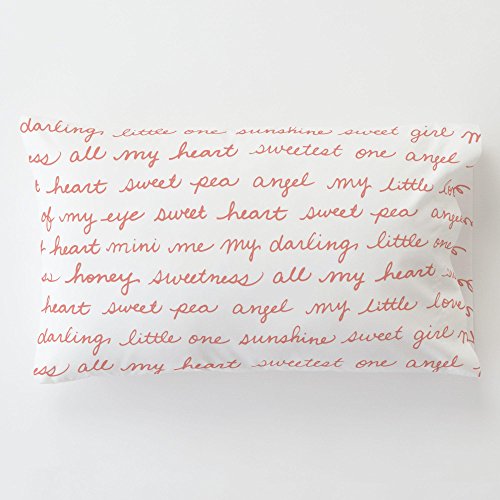 darling little one sunshine sweet girl m
ess all my heart sweetest one angel
t heart sweet pea angel my little lo
of my eye sweet heart sweet pea angel
t heart mini me my darling little one
es honey sweetness all my heart s
heart sweet pea angel my little love
darling little one sunshine sweet girl m
ess all my heart sweetest one angel